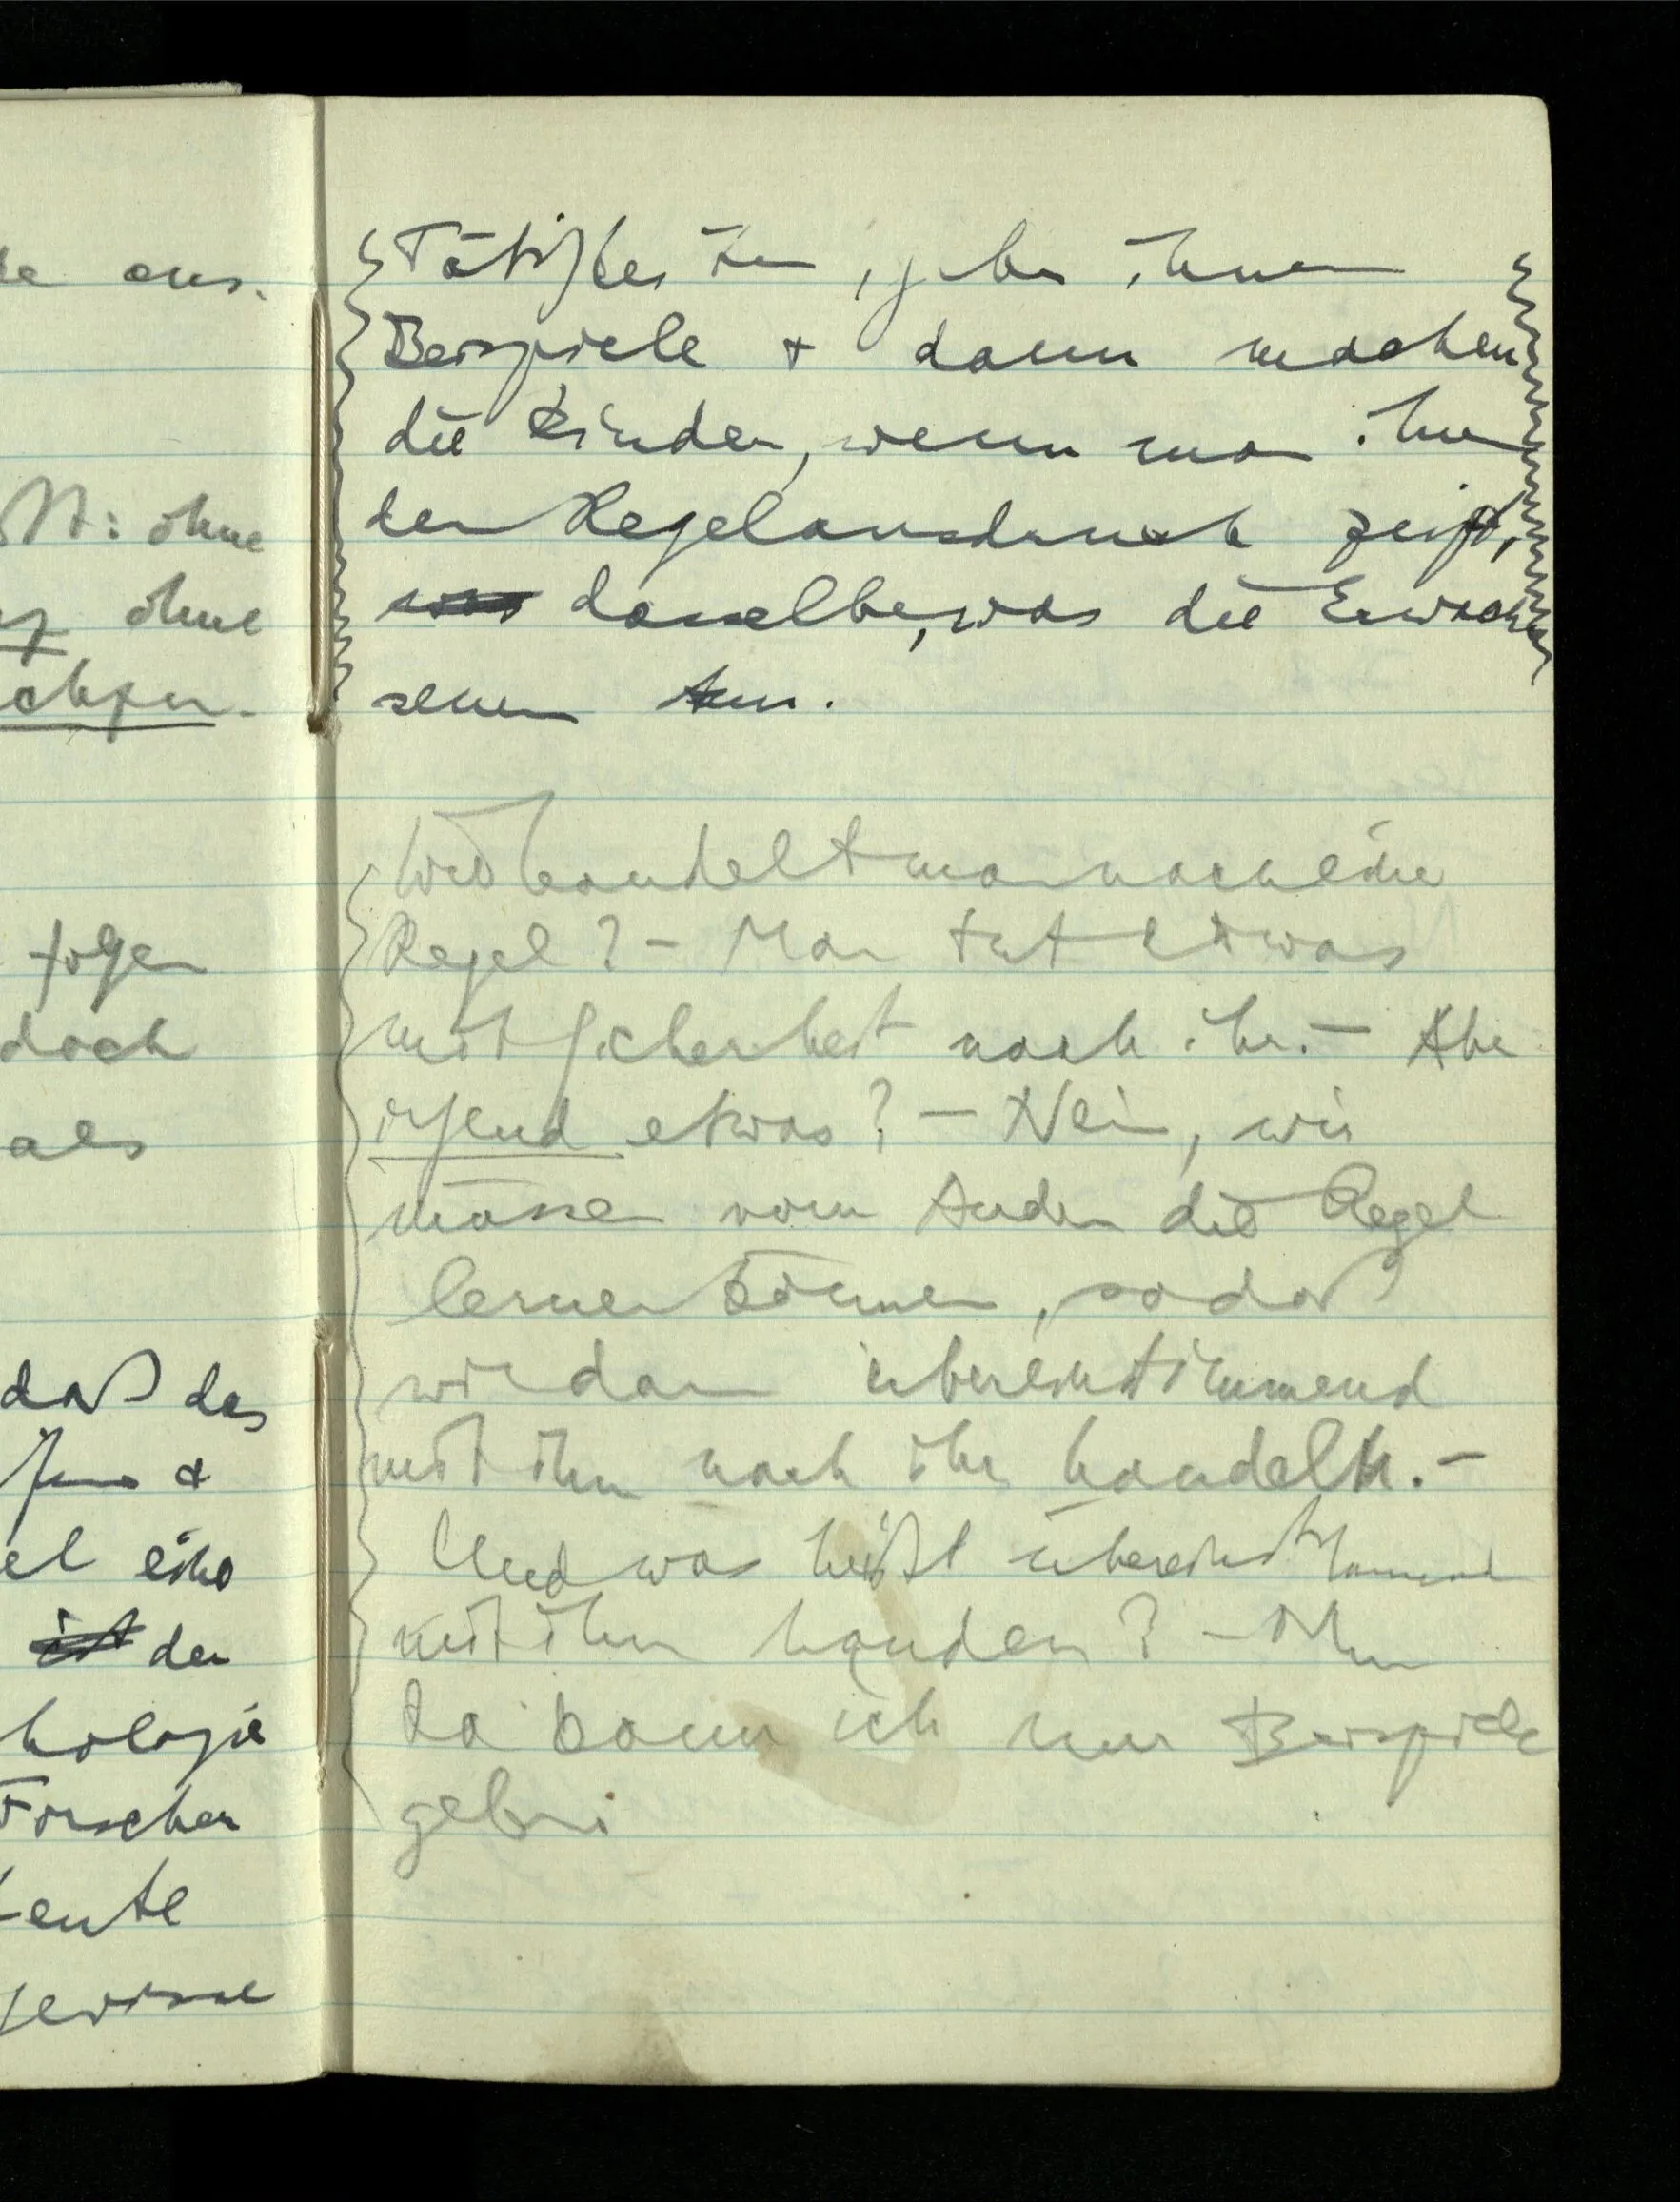 de aus.
N: ohne
ohne
folgen
doch
als
daß das
&
el eine
ist den
hologie
Forscher
Leute
gewisse
Tätigkeiten, geben ihnen
Beispiele & dann machen
die Kinder, wenn man ihnen
den Regelausdruck zeigt,
was dasselbe, was die Erwach
senen tun.
Wie handelt man nach einer
Regel? – Man tut etwas
mit Sicherheit nach ihr. – Aber
irgend etwas? – Nein, wir
müssen vom Andern die Regel
lernen können, sodaß
wir dann übereinstimmend
mit ihm nach ihr handeln. –
Und was heißt übereinstimmend
mit ihm handeln? – Nun
da kann ich nur Beispiele
geben